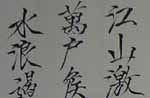 江山激
萬户侯
水浪遏